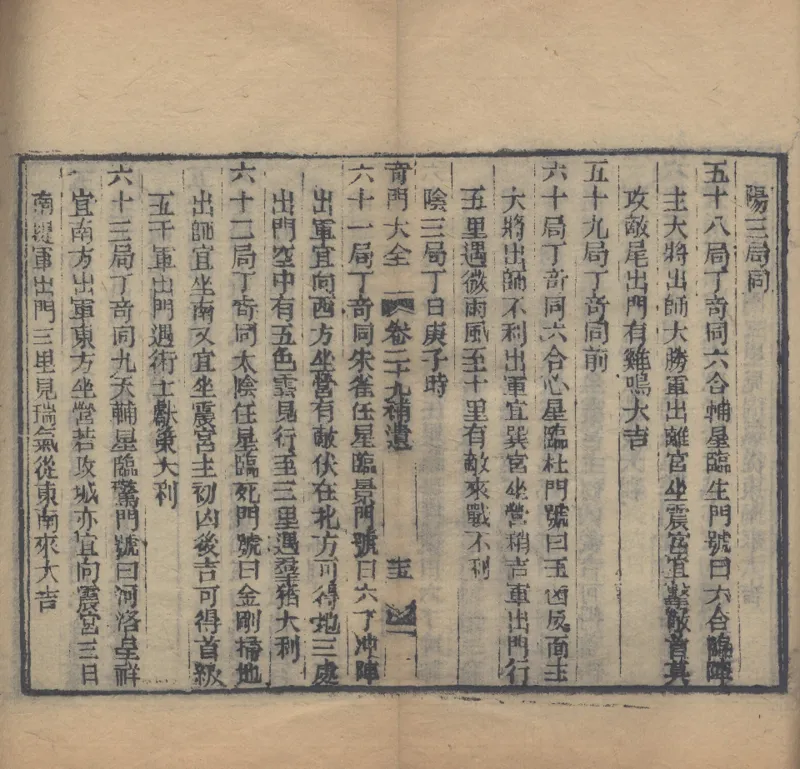 陽三局同
五十八局丁奇同六合輔星臨生門號曰六合臨陣
主大將出師大勝軍出離宮坐震宮宜擊敵首莫
攻敵尾出門有雞鳴大吉
五十九局丁奇同前
六十局丁奇同六合心星臨杜門號曰五凶反面主
大將出師不利出軍宜巽宮坐營稍吉軍出門行
五里遇微雨風至十里有敵來戰不利
陰三局丁日庚子時
奇門大全 卷二十九補遺
六十一局丁奇同朱雀任星臨景門號曰六丁冲陣
出軍宜向西方坐營有敵伏在北方可得地三處
出門空中有五色雲見行至三里遇羣猪大利
六十二局丁奇同太陰任星臨死門號曰金剛掃地
出師宜坐南又宜坐震宮主初凶後吉可得首級
五千軍出門遇術士獻策大利
六十三局丁奇同九天輔星臨驚門號曰河洛呈祥
宜南方出軍東方坐營若攻城亦宜向震宮三日
南軍出門三里見瑞氣從東南來大吉